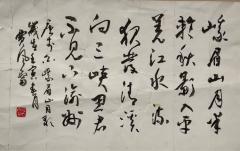 峨眉山月半
輪秋影入平
羌江水流
夜發清溪
向三峽思君
不見下渝州
唐李白峨眉山月歌
歲在壬寅月